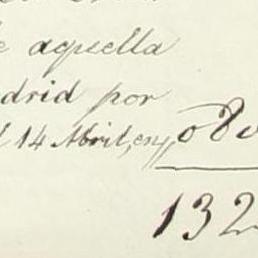 e aquella
drid por
l 14 Abril, en
132